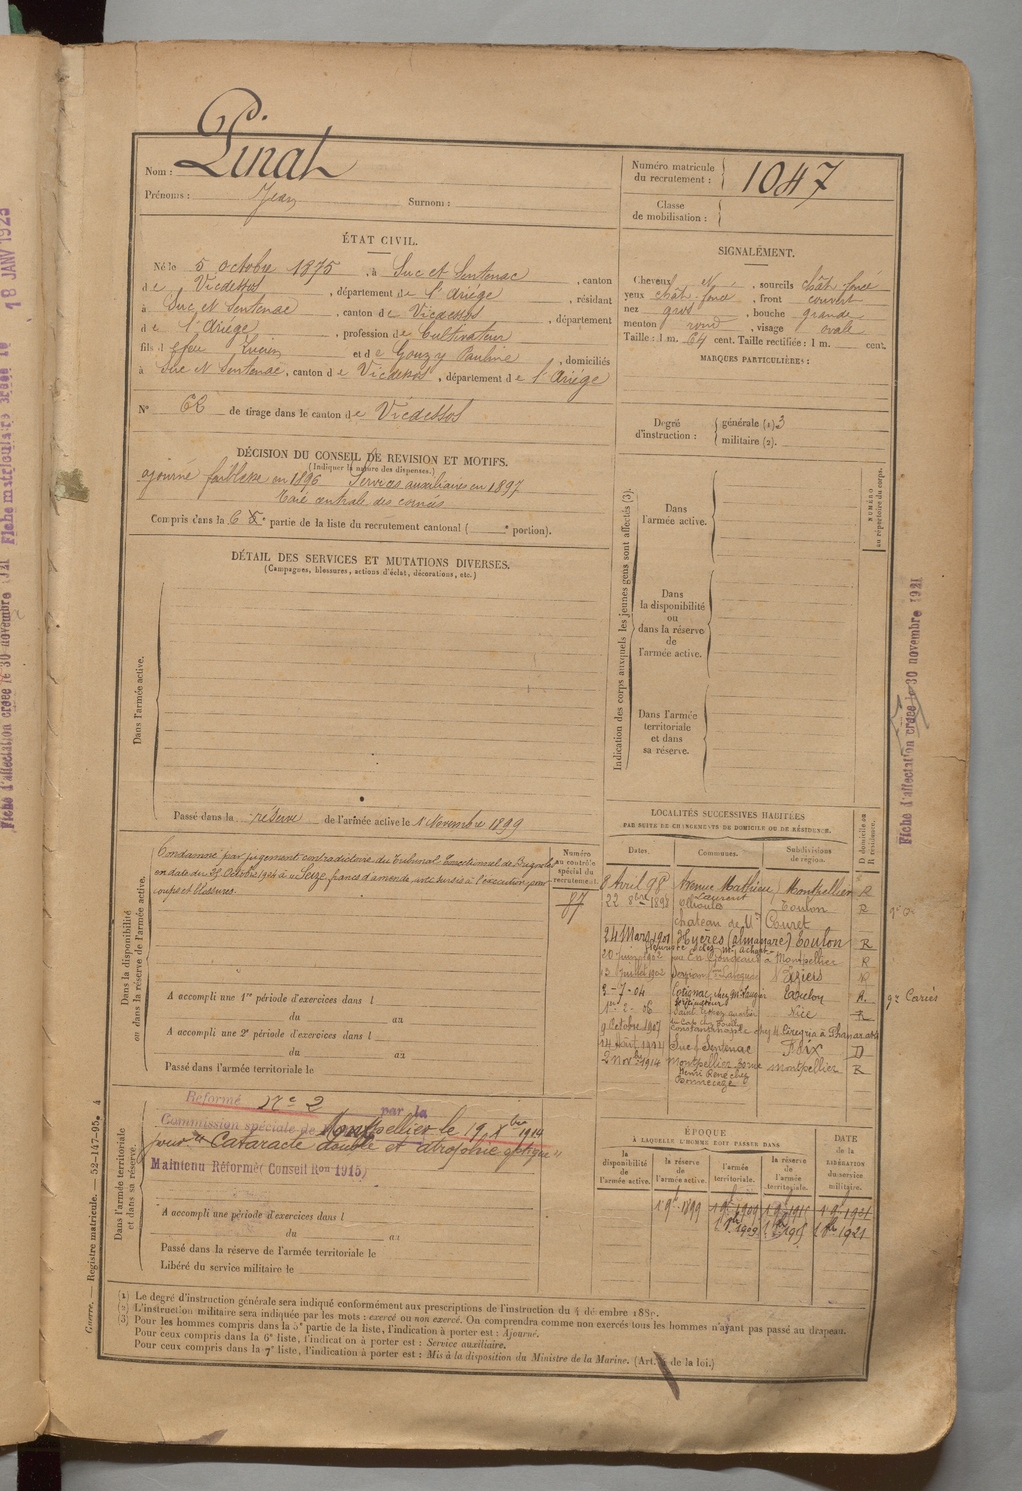 Nom : Pinat
Prénoms : Jean Surnom :
Numéro matricule du recrutement : 1047
Classe de mobilisation :
ÉTAT CIVIL.
Né le 5 octobre 1875, à Suc et Sentenac, canton
de Vicdessos, département de l'Ariége, résidant
à Suc et Sentenac, canton de Vicdessos, département
de l'Ariége, profession de Cultivateur
fils d feu Lucien et de Gouzy Pauline, domiciliés
à Suc et Sentenac, canton de Vicdessos, département de l'Ariége
N° 62 de tirage dans le canton de Vicdessos
SIGNALÉMENT.
Cheveux N, sourcils chât foncé
yeux chât foncé, front couvert
nez gros, bouche grande
menton rond, visage ovale
Taille : 1 m. 64 cent. Taille rectifiée : 1 m. cent.
MARQUES PARTICULIÈRES :
Degré d'instruction : générale (1) 3
militaire (2).
DÉCISION DU CONSEIL DE REVISION ET MOTIFS.
(Indiquer la nature des dispenses.)
ajourné faiblesse en 1896 Services auxiliaires en 1897
Taie centrale des cornées
Compris dans la 6e partie de la liste du recrutement cantonal ( e portion).
DÉTAIL DES SERVICES ET MUTATIONS DIVERSES.
(Campagnes, blessures, actions d'éclat, décorations, etc.)
Dans l'armée active.
Passé dans la réserve de l'armée active le 1 Novembre 1899
Indication des corps auxquels les jeunes gens sont affectés (3).
NUMÉRO au répertoire du corps.
Dans l'armée active.
Dans la disponibilité ou dans la réserve de l'armée active.
Dans l'armée territoriale et dans sa réserve.
Dans la disponibilité ou dans la réserve de l'armée active.
Condamné par jugement contradictoire du Tribunal Correctionnel de Brignoles
en date du 31 Octobre 1904 à Seize francs d'amende avec sursis à l'exécution pour
coups et blessures.
Numéro au contrôle spécial du recrutement.
87
A accompli une 1re période d'exercices dans l
du au
A accompli une 2e période d'exercices dans l
du au
Passé dans l'armée territoriale le
LOCALITÉS SUCCESSIVES HABITÉES
PAR SUITE DE CHANGEMENTS DE DOMICILE OU DE RÉSIDENCE.
Dates. Communes. Subdivisions de région. D domicile ou R résidence.
8 Avril 98 Avenue Mathieu Laurent Montpellier R
22 8bre 1898 Ollioules Toulon R
chateau de Mr Couret
24 Mars 1901 Hyères (almanarre) Toulon R
Montpellier R
Béziers
3-7-04 Cotignac Toulon R.
1er-2-06 Nice R
9 Octobre 1907 Constantinople
24 Août 1914 Suc Sentenac Foix D
2 Novbre 1914 Montpellier Montpellier R
Dans l'armée territoriale et dans sa réserve.
Réformé No 2 par la
Commission spéciale de Montpellier le 19 Xbre 1914
pour "Cataracte double et atrophie optique"
Maintenu Réformé (Conseil Ron 1915)
A accompli une période d'exercices dans l
du au
Passé dans la réserve de l'armée territoriale le
Libéré du service militaire le
ÉPOQUE
À LAQUELLE L'HOMME DOIT PASSER DANS
la disponibilité de l'armée active. la réserve de l'armée active. l'armée territoriale. la réserve de l'armée territoriale. DATE de la LIBÉRATION du service militaire.
(1) Le degré d'instruction générale sera indiqué conformément aux prescriptions de l'instruction du 4 décembre 1889.
(2) L'instruction militaire sera indiquée par les mots : exercé ou non exercé. On comprendra comme non exercés tous les hommes n'ayant pas passé au drapeau.
(3) Pour les hommes compris dans la 5e partie de la liste, l'indication à porter est : Ajourné.
Pour ceux compris dans la 6e liste, l'indication à porter est : Service auxiliaire.
Pour ceux compris dans la 7e liste, l'indication à porter est : Mis à la disposition du Ministre de la Marine. (Art. 4 de la loi.)
Guerre. — Registre matricule. — 52-147-95. 4
Fiche d'affectation créée le 30 novembre 1921
Fiche d'affectation créée le 30 novembre 1921 Fiche matriculaire créée le 18 JANV 1925